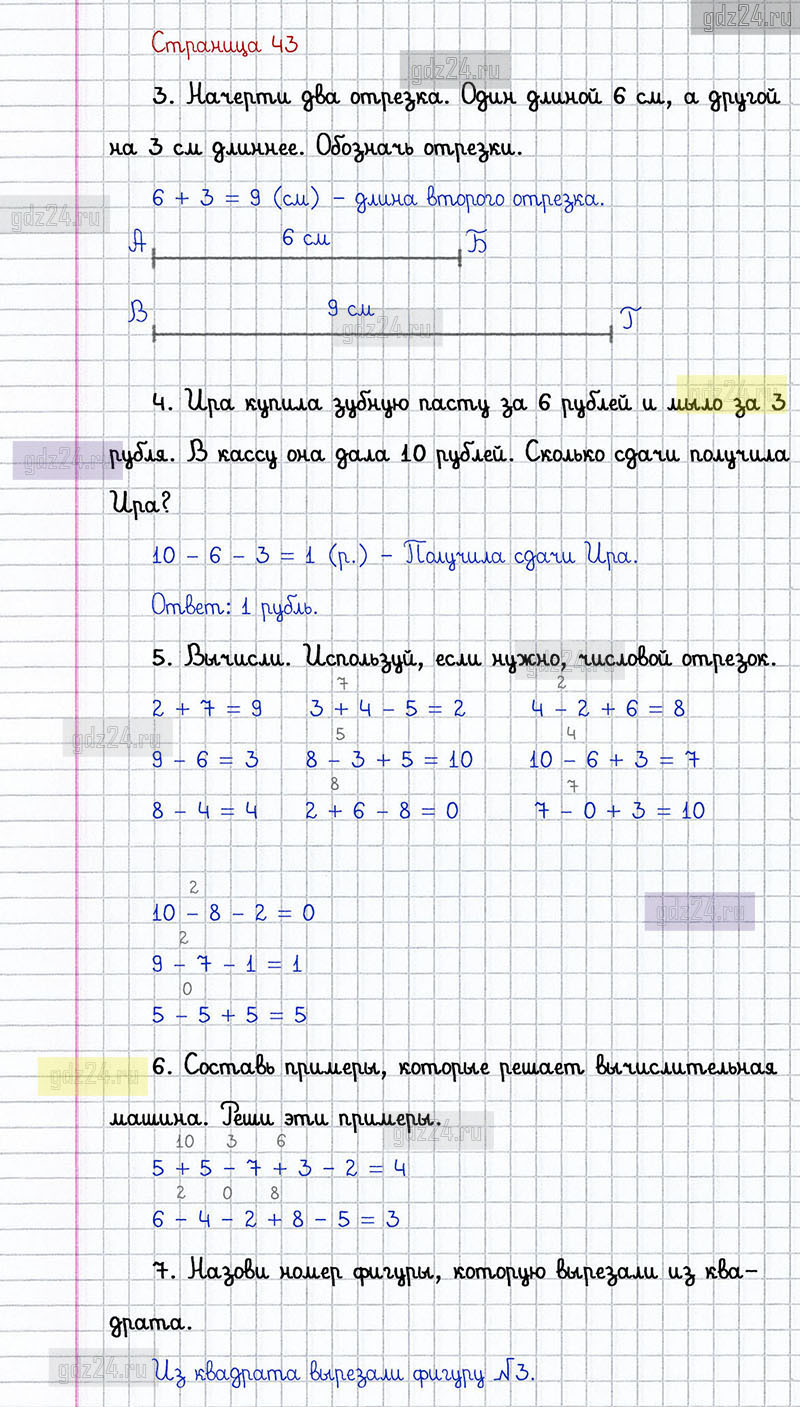 gdz24.ru
Страница 43
gdz24.ru
3. Начерти два отрезка. Один длиной 6 см, а другой
на 3 см длиннее. Обозначь отрезки.
6 + 3 = 9 (см) – длина второго отрезка.
gdz24.ru
А 6 см Б
В 9 см Г
gdz24.ru
gdz24.ru
4. Ира купила зубную пасту за 6 рублей и мыло за 3
рубля. В кассу она дала 10 рублей. Сколько сдачи получила
gdz24.ru
Ира?
10 – 6 – 3 = 1 (р.) – Получила сдачи Ира.
Ответ: 1 рубль.
5. Вычисли. Используй, если нужно, числовой отрезок.
gdz24.ru
7 2
2 + 7 = 9 3 + 4 – 5 = 2 4 – 2 + 6 = 8
gdz24.ru
5 4
9 – 6 = 3 8 – 3 + 5 = 10 10 – 6 + 3 = 7
8 7
8 – 4 = 4 2 + 6 – 8 = 0 7 – 0 + 3 = 10
2
10 – 8 – 2 = 0
gdz24.ru
2
9 – 7 – 1 = 1
0
5 – 5 + 5 = 5
6. Составь примеры, которые решает вычислительная
gdz24.ru
машина. Реши эти примеры.
gdz24.ru
10 3 6
5 + 5 – 7 + 3 – 2 = 4
2 0 8
6 – 4 – 2 + 8 – 5 = 3
7. Назови номер фигуры, которую вырезали из ква–
драта.
Из квадрата вырезали фигуру №3.
gdz24.ru